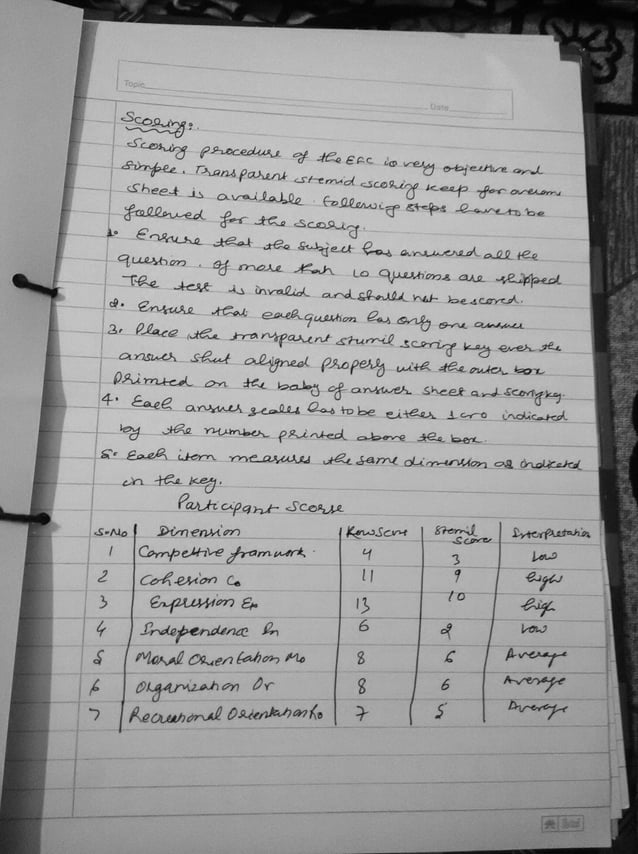 Topic
Date
Scoring:
Scoring procedure of the EFC is very objective and
simple. Transparent stemid scoring keep for
sheet is available. following steps have to be
followed for the scoring.
1. Ensure that the subject has answered all the
question. If more than 10 questions are skipped
The test is invalid and should not be scored.
2. Ensure that each question has only one answer
3. Place the transparent stumil scoring key over the
answer shut aligned properly with the outer box
Primted on the baby of answer sheet and scoring key.
4. Each answer scales has to be either 1 or 0 indicated
by the number printed above the box.
5. Each item measures the same dimension as indicated
in the key.
Participant Scorse
S.No Dimension Row Score Stemil Score Interpretation
1 Competive framwork. 4 3 Low
2 Cohesion Co 11 9 high
3 Expression Ex 13 10 high
4 Independence In 6 2 Low
5 Moral Orientation Mo 8 6 Average
6 Organization Or 8 6 Average
7 Recreational Orientation Ro 7 5 Average